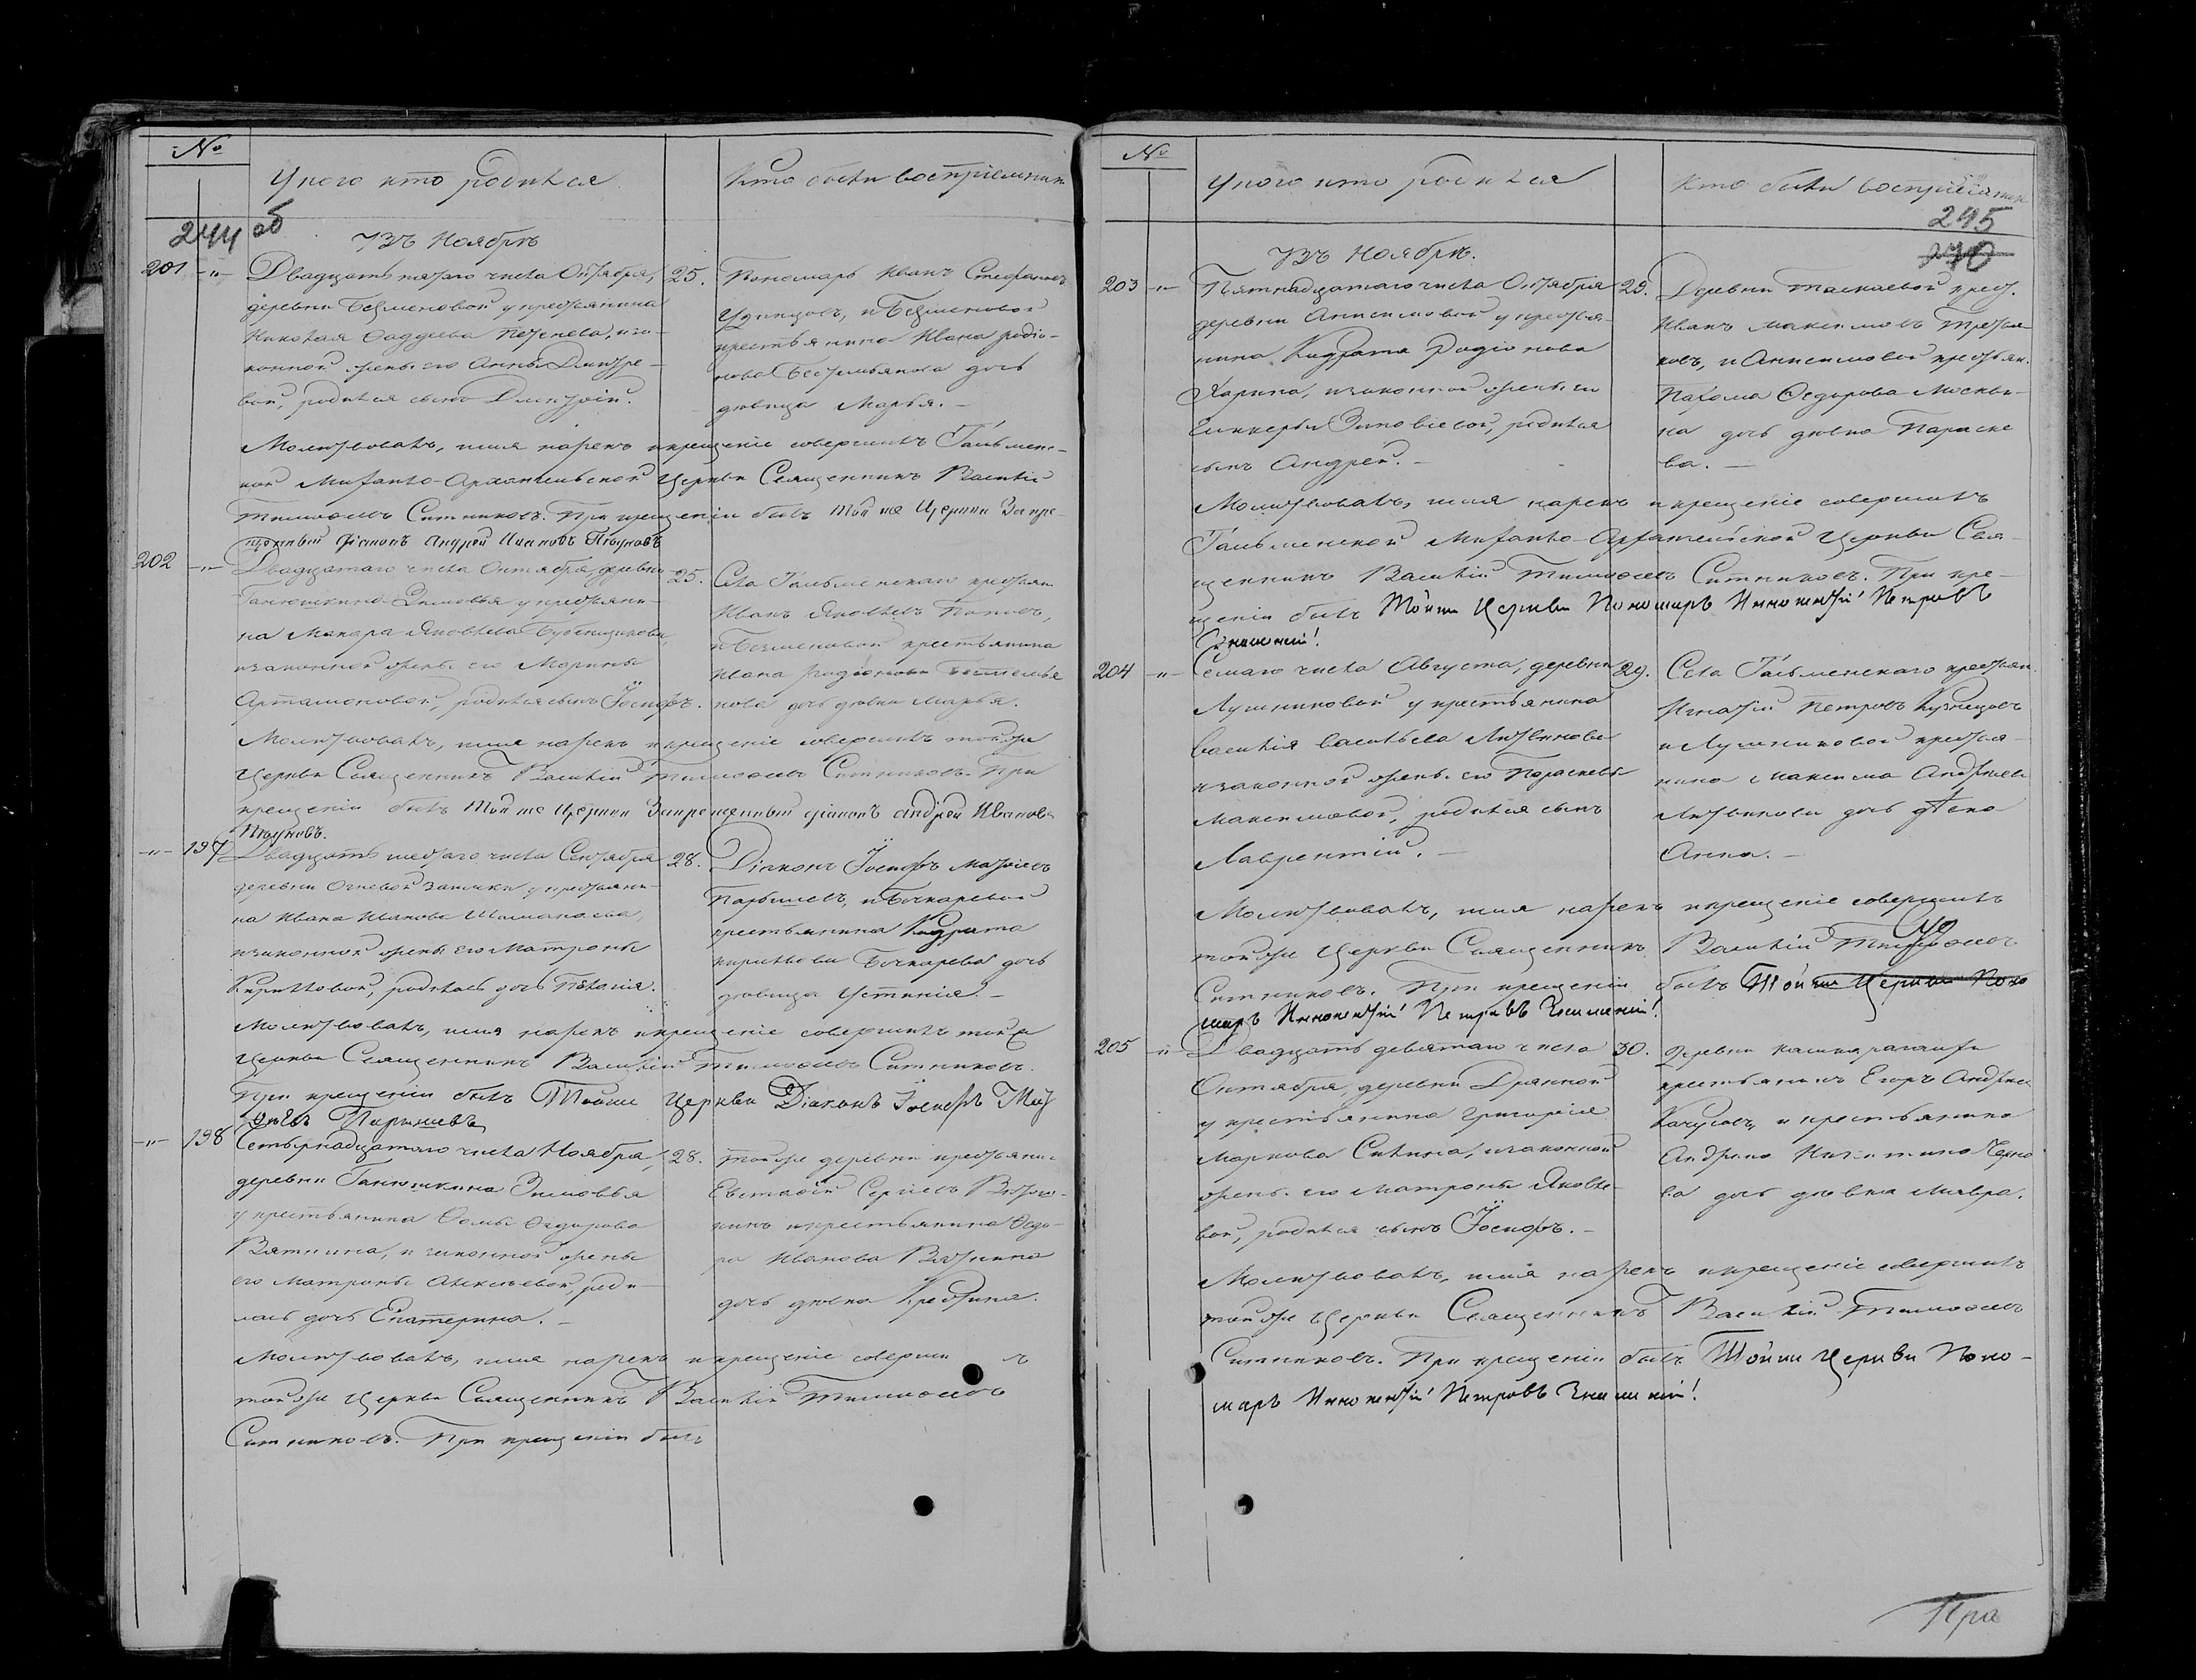 №
У кого кто родился
Кто были восприемники
244 об
Въ Ноябрѣ
201 -"- Двадцать пятаго числа Октября,
деревни Безменовой у крестьянина
Николая Ѳаддѣева, иза-
конной жены его Анны Дмитре-
вой, родился сынъ Димитрій.
25. Пономарь Иванъ Стефановъ
и Безменовой
крестьянина Ивана Родіо-
нова дочь
дѣвица Марья.
Молитвовалъ, имя нарекъ и крещеніе совершилъ Тальмен-
кой Михаило-Архангельской Церкви Священникъ Василій
Тимоѳеевъ Ситниковъ. При крещеніи былъ той же Церкви Запре-
щенный діаконъ Андрей Ивановъ
202 -"- Двадцатаго числа Октября, деревни
Ганюшкина-Зимовья у крестьяни-
на Макара Яковлева Бубенщикова,
изаконной жены его Марины
Артамоновой, родился сынъ Іосифъ.
25. Села Тальменскаго крестьян.
Иванъ Яковлевъ Поповъ,
и Безменовой крестьянина
Ивана Родіонова
нова дочь дѣвка Марья.
Молитвовалъ, имя нарекъ и крещеніе совершилъ тойже
Церкви Священникъ Василій Тимоѳеевъ Ситниковъ. При
крещеніи былъ той же Церкви Запрещенный діаконъ Андрей Ивановъ
-"- 197 Двадцать шестаго числа Сентября
деревни Огневой Заимки у крестьяни-
на Ивана Иванова
изаконной жены его Матроны
Кириловой, родилась дочь Пелагія.
28. Діаконъ Іосифъ Матѳіевъ
Парышевъ, и Бочкаревой
крестьянина Кодрата
Кирилова Бочкарева дочь
дѣвица Устинія.
Молитвовалъ, имя нарекъ и крещеніе совершилъ тойже
Церкви Священникъ Василій Тимоѳеевъ Ситниковъ.
При крещеніи былъ Тойже Церкви Діаконъ Іосифъ Мат
ѳіевъ Парышевъ
-"- 198 Четырнадцатаго числа Ноября,
деревни Ганюшкина Зимовья
у крестьянина Ѳомы Ѳедорова
Вяткина, изаконной жены
его Матроны Алексѣевой, роди-
лась дочь Екатерина.
28. Тойже деревни крестьянин.
Евстафій Сергіевъ
и крестьянина Ѳедо-
ра Иванова Вяткина
дочь дѣвка
Молитвовалъ, имя нарекъ и крещеніе соверши ъ
тойже Церкви Священникъ Василій Тимоѳеевъ
Ситниковъ. При крещеніи былъ
№
У кого кто родился
Кто были восприемники
245
Въ Ноябрѣ.
203 -"- Пятнадцатаго числа Октября
деревни Анисимовой у крестья-
нина Кодрата Родіонова
Харина, изаконной жены его
Гликеріи Зиновіевой, родился
сынъ Андрей.
29. Деревни Таскаевой крест.
Иванъ Максимовъ Третья-
ковъ, и Анисимовой крестьян.
Пахома Ѳедорова Москви-
на дочь дѣвка Параске
ва.
Молитвовалъ, имя нарекъ и крещеніе совершилъ
Тальменской Михаило-Архангельской Церкви Свя-
щенникъ Василій Тимоѳеевъ Ситниковъ. При кре-
щеніи былъ Тойже Церкви Пономарь Иннокентій Петровъ
204 -"- Семаго числа Августа, деревни
Лушниковой у крестьянина
Василія Васильева Литвинова
изаконной жены его Параскевы
Максимовой, родился сынъ
Лаврентій.
29. Села Тальменскаго крестьян.
Игнатій Петровъ Кузнецовъ
и Лушниковой крестья-
нина Максима Андреева
Литвинова дочь дѣвка
Анна.
Молитвовалъ, имя нарекъ и крещеніе совершилъ
тойже Церкви Священникъ Василій Тимоѳеевъ
Ситниковъ. При крещеніи былъ Тойже Церкви Поно
марь Иннокентій Петровъ
205 -"- Двадцать девятаго числа
Октября, деревни Дрянной
у крестьянина Григорія
Маркова Силина, изаконной
жены его Матроны Яковле-
вой, родился сынъ Іосифъ.
30. Деревни
крестьянинъ Егоръ Андреев
и крестьянина
Андрея Никитина Черно
ва дочь дѣвка Мавра.
Молитвовалъ, имя нарекъ и крещеніе совершилъ
тойже Церкви Священникъ Василій Тимоѳеевъ
Ситниковъ. При крещеніи былъ Тойже Церкви Поно-
марь Иннокентій Петровъ